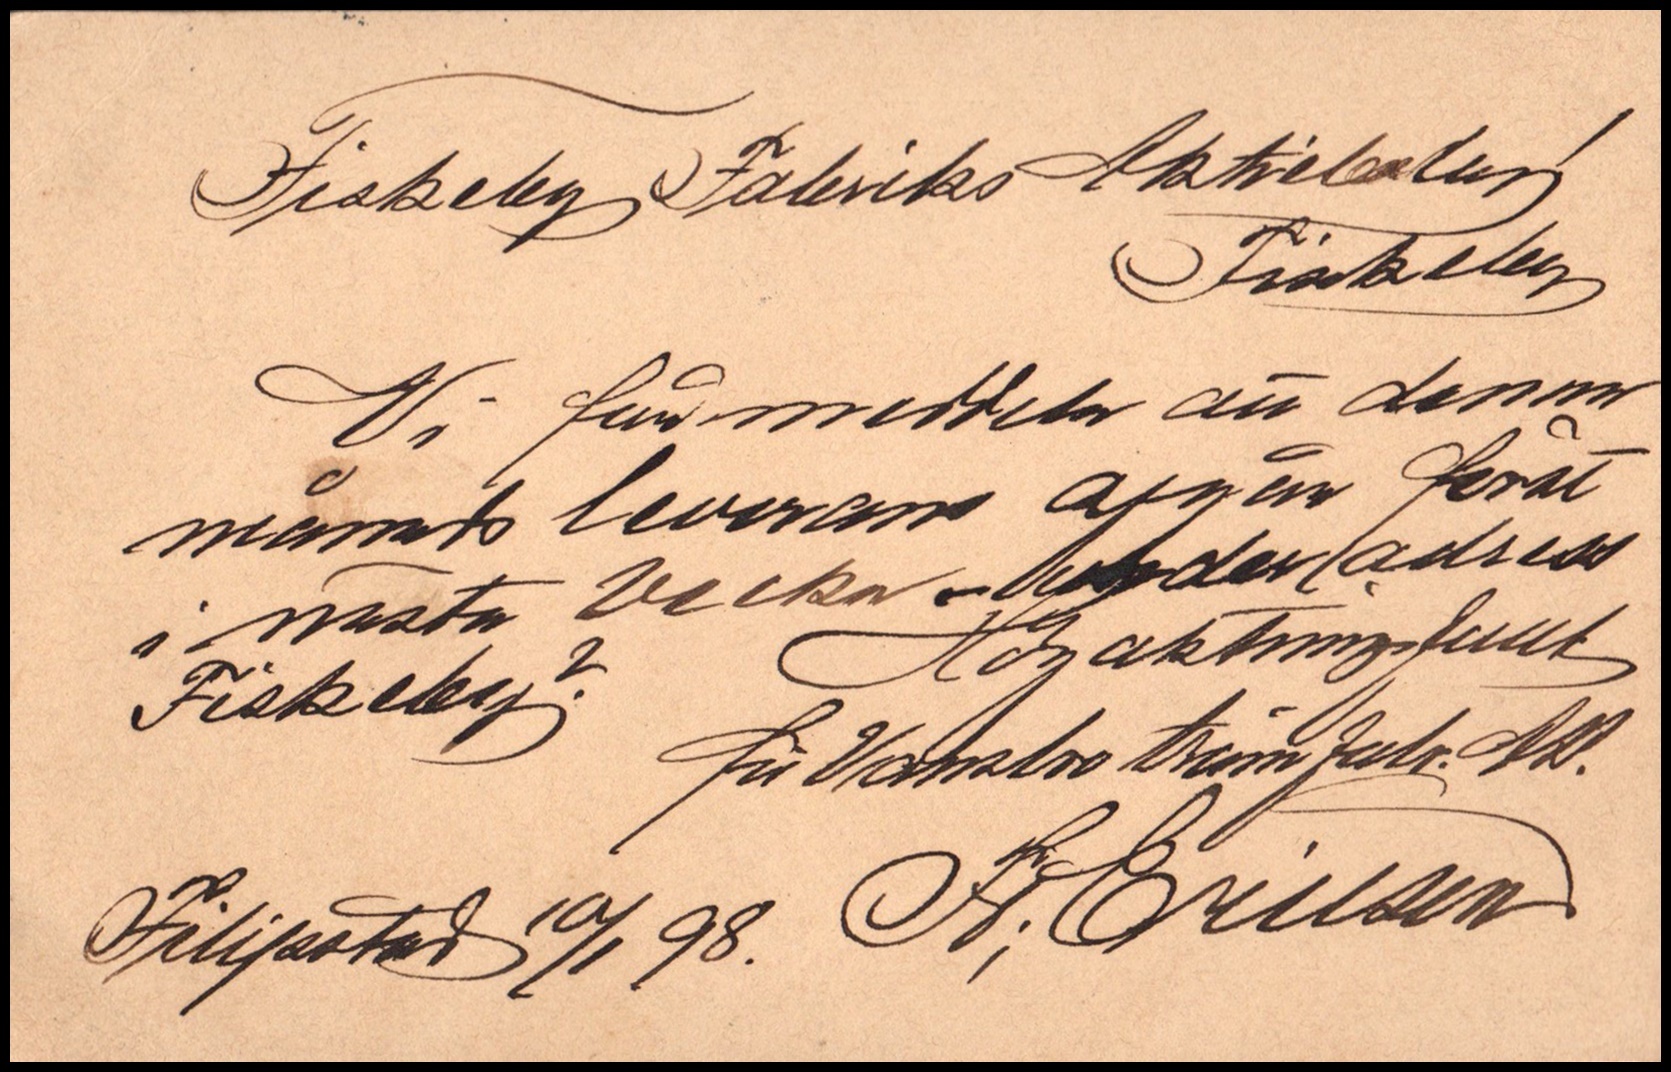 Fiskeby Fabriks Aktiebolag
Fiskeby
Vi få meddela att denna
månads leverans afgår först
i nästa Vecka under adress
Fiskeby?
Högaktningsfullt
för trämfabr. AB.
Fr. Ericsson
Filipstad 10/1 98.